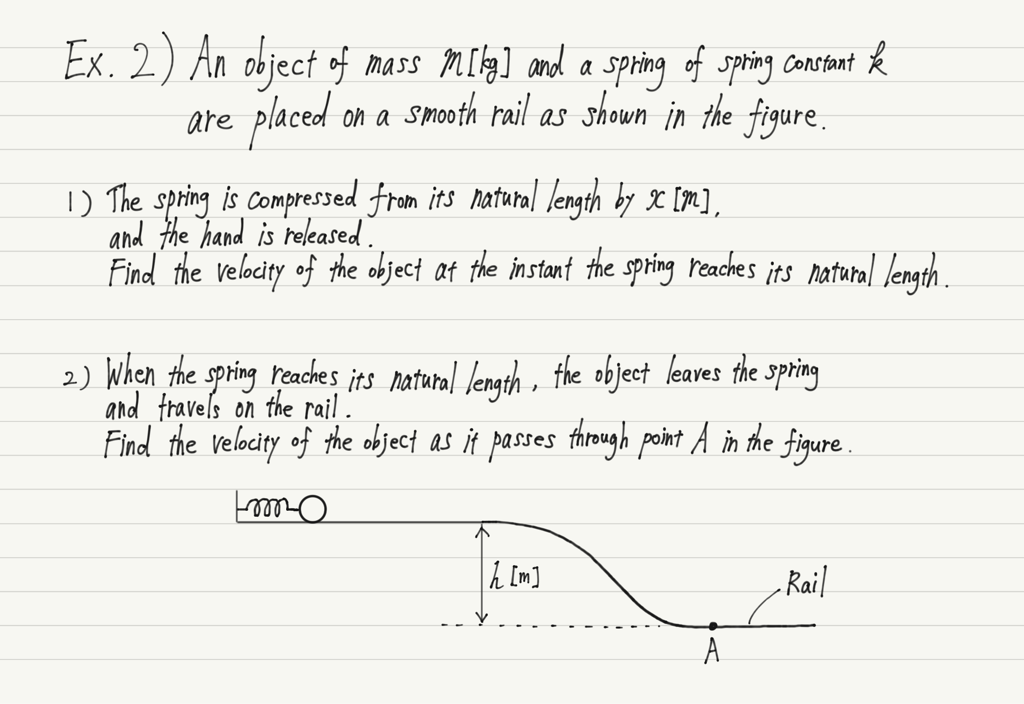 Ex. 2) An object of mass m[kg] and a spring of spring constant k
are placed on a smooth rail as shown in the figure.
1) The spring is compressed from its natural length by x [m],
and the hand is released.
Find the velocity of the object at the instant the spring reaches its natural length.
2) When the spring reaches its natural length, the object leaves the spring
and travels on the rail.
Find the velocity of the object as it passes through point A in the figure.
h [m]
Rail
A